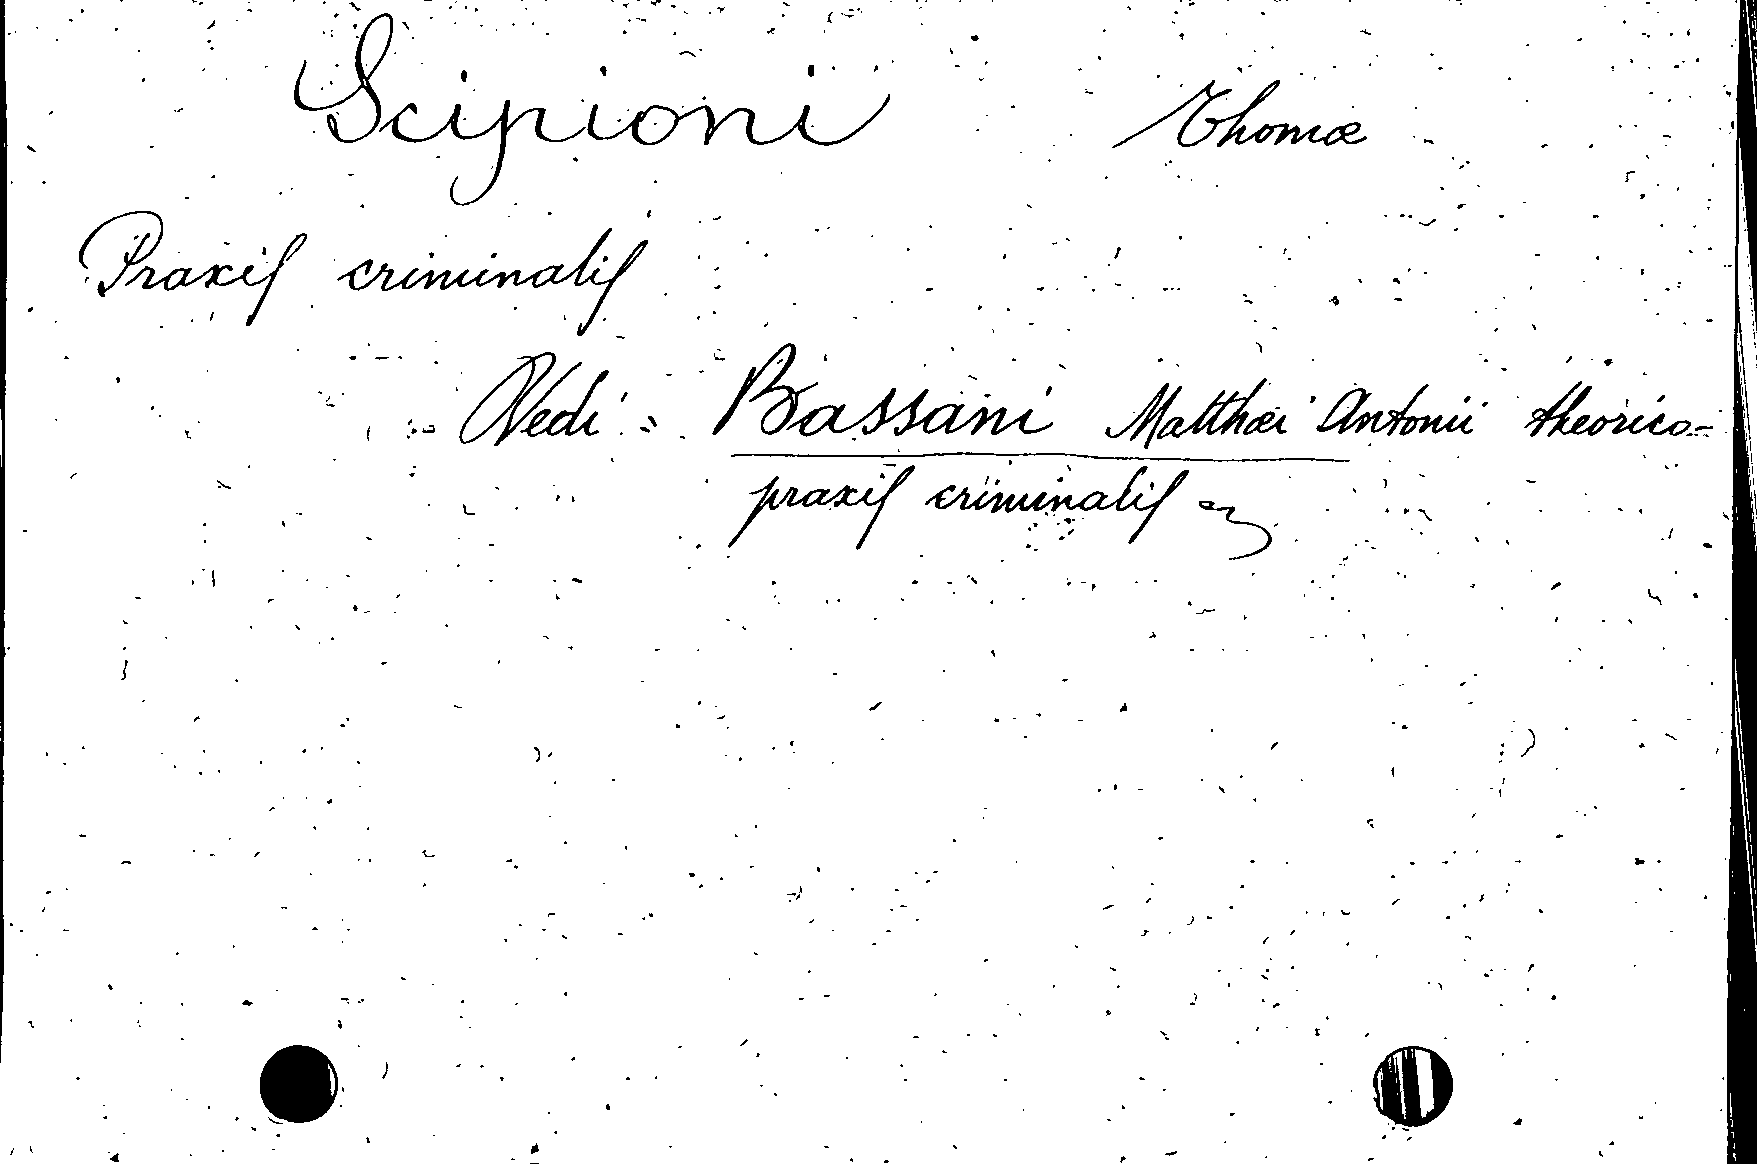 Scipioni Thomæ
Praxiſ criminaliſ
Vedi = Bassani Matthæi Antonii theorico-
praxiſ criminaliſ